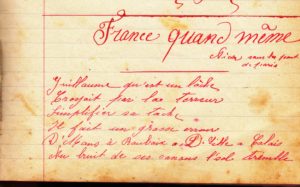 France quand même
Guillaume qu'est un lâche
Croyait par la terreur
Simplifier sa tâche
Il fait un' grosse erreur
D'Mons à Roubaix, D'Lille à Calais
Au bruit de ses canons l'sol tremble